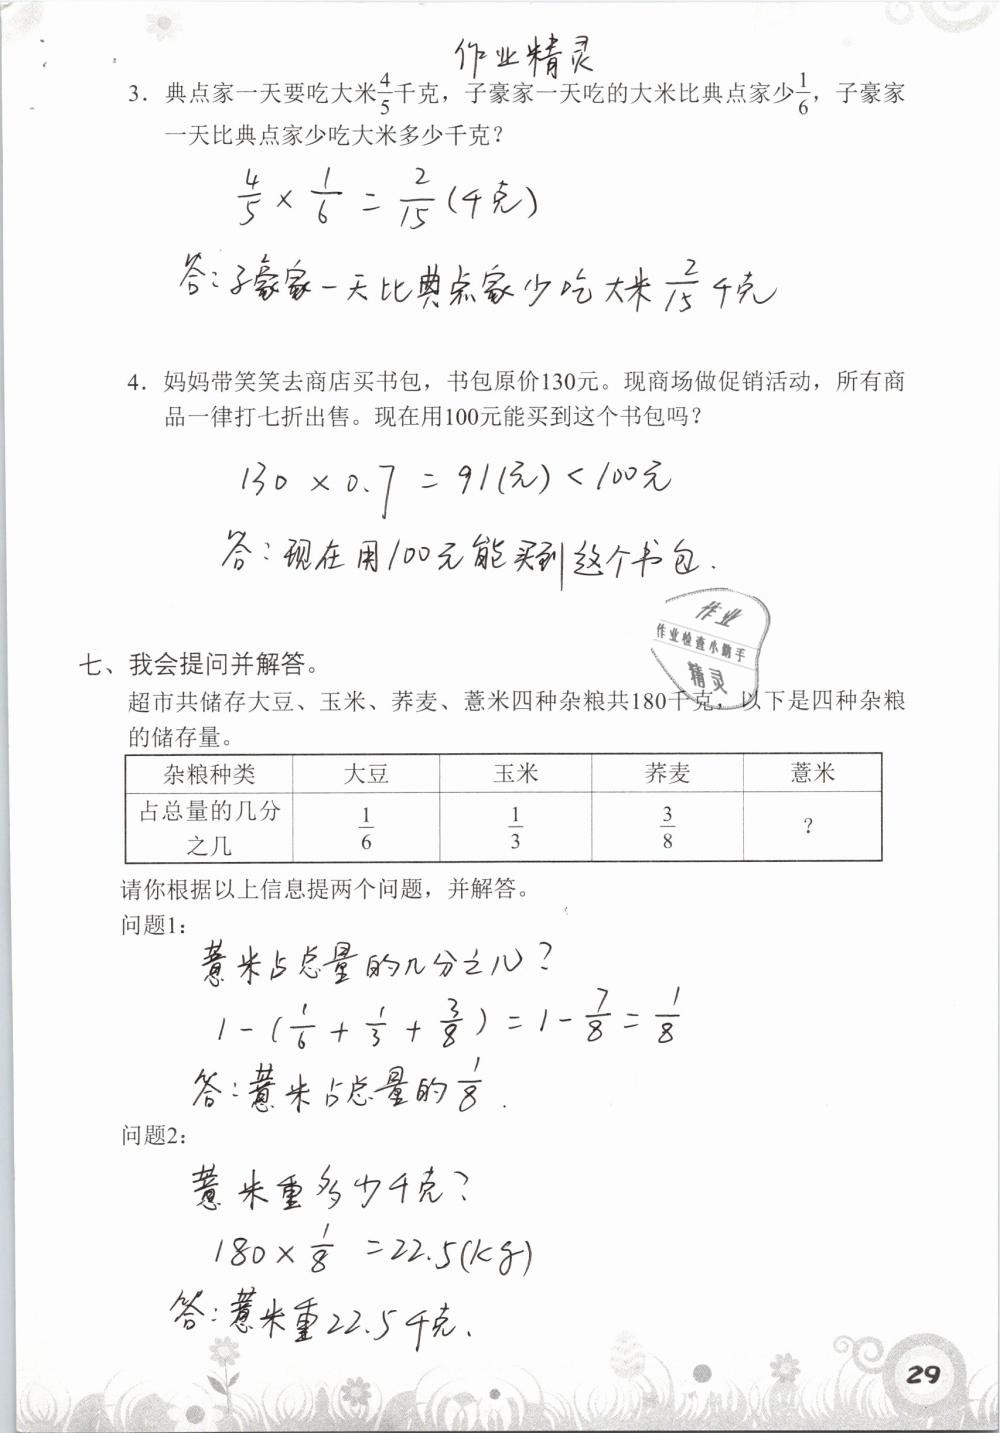 作业精灵
3. 典点家一天要吃大米4/5千克，子豪家一天吃的大米比典点家少1/6，子豪家
一天比典点家少吃大米多少千克？
4/5 × 1/6 = 2/15 (千克)
答：子豪家一天比典点家少吃大米 2/15 千克
4. 妈妈带笑笑去商店买书包，书包原价130元。现商场做促销活动，所有商
品一律打七折出售。现在用100元能买到这个书包吗？
130 × 0.7 = 91(元) < 100元
答：现在用100元能买到这个书包.
作业
作业检查小帮手
精灵
七、我会提问并解答。
超市共储存大豆、玉米、荞麦、薏米四种杂粮共180千克，以下是四种杂粮
的储存量。
杂粮种类 大豆 玉米 荞麦 薏米
占总量的几分之几 1/6 1/3 3/8 ?
请你根据以上信息提两个问题，并解答。
问题1：
薏米占总量的几分之几？
1-(1/6 + 1/3 + 3/8) = 1 - 7/8 = 1/8
答：薏米占总量的 1/8 .
问题2：
薏米重多少千克？
180 × 1/8 = 22.5(kg)
答：薏米重22.5千克.
29